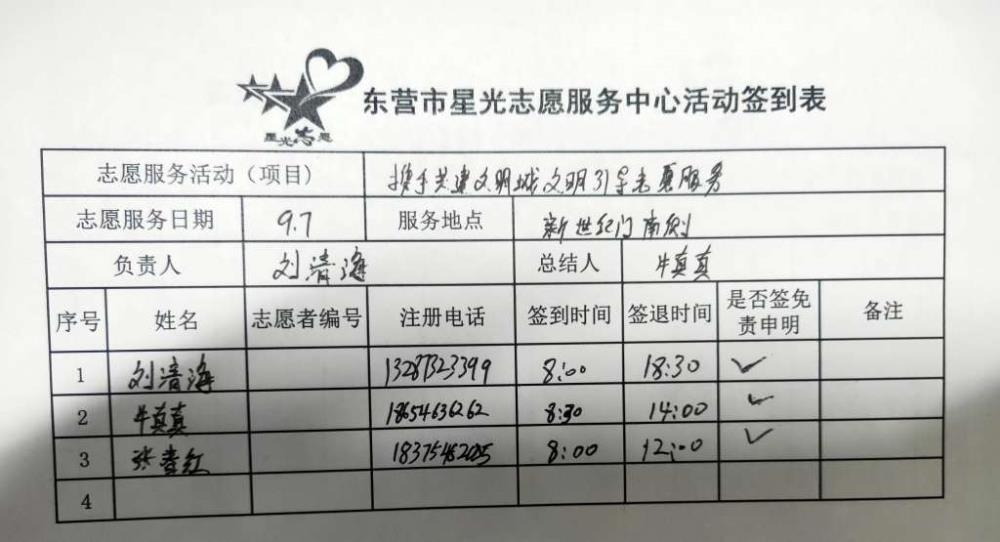 星光志愿
东营市星光志愿服务中心活动签到表
志愿服务活动（项目） 携手共建文明城文明引导志愿服务
志愿服务日期 9.7 服务地点 新世纪门南侧
负责人 刘清海 总结人 牛真真
序号 姓名 志愿者编号 注册电话 签到时间 签退时间 是否签免责申明 备注
1 刘清海 13287323399 8:00 18:30 ✓
2 牛真真 18654636262 8:30 14:00 ✓
3 张春红 8:00 12:00 ✓
4